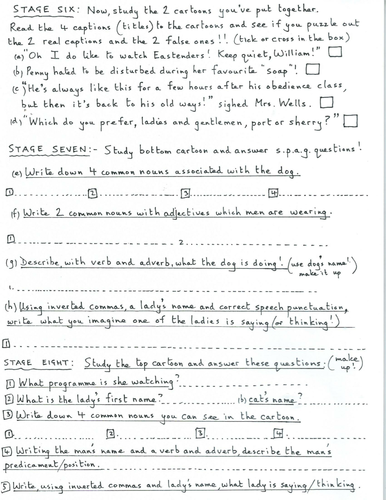 STAGE SIX: Now, study the 2 cartoons you've put together.
Read the 4 captions (titles) to the cartoons and see if you puzzle out
the 2 real captions and the 2 false ones!! (tick or cross in box)
(a) "Oh I do like to watch Eastenders! Keep quiet, William!"
(b) Penny hated to be disturbed during her favourite "soap"!
(c) "He's always like this for a few hours after his obedience class,
but then it's back to his old ways!" sighed Mrs. Wells.
(d) "Which do you prefer, ladies and gentlemen, port or sherry?"
STAGE SEVEN:- Study bottom cartoon and answer s.p.a.g. questions!
(e) Write down 4 common nouns associated with the dog.
1 2 3 4
(f) Write 2 common nouns with adjectives which men are wearing.
1 2
(g) Describe, with verb and adverb, what the dog is doing! (use dog's name! make it up
1.
(h) Using inverted commas, a lady's name and correct speech punctuation,
write what you imagine one of the ladies is saying/or thinking!)
1
STAGE EIGHT: Study the top cartoon and answer these questions: (make up!)
1 What programme is she watching?
2 What is the lady's first name? (b) cat's name?
3 Write down 4 common nouns you can see in the cartoon.
1 2. 3. 4.
4 Writing the man's name and a verb and adverb, describe the man's
predicament/position.
5 Write, using inverted commas and lady's name, what lady is saying/thinking.